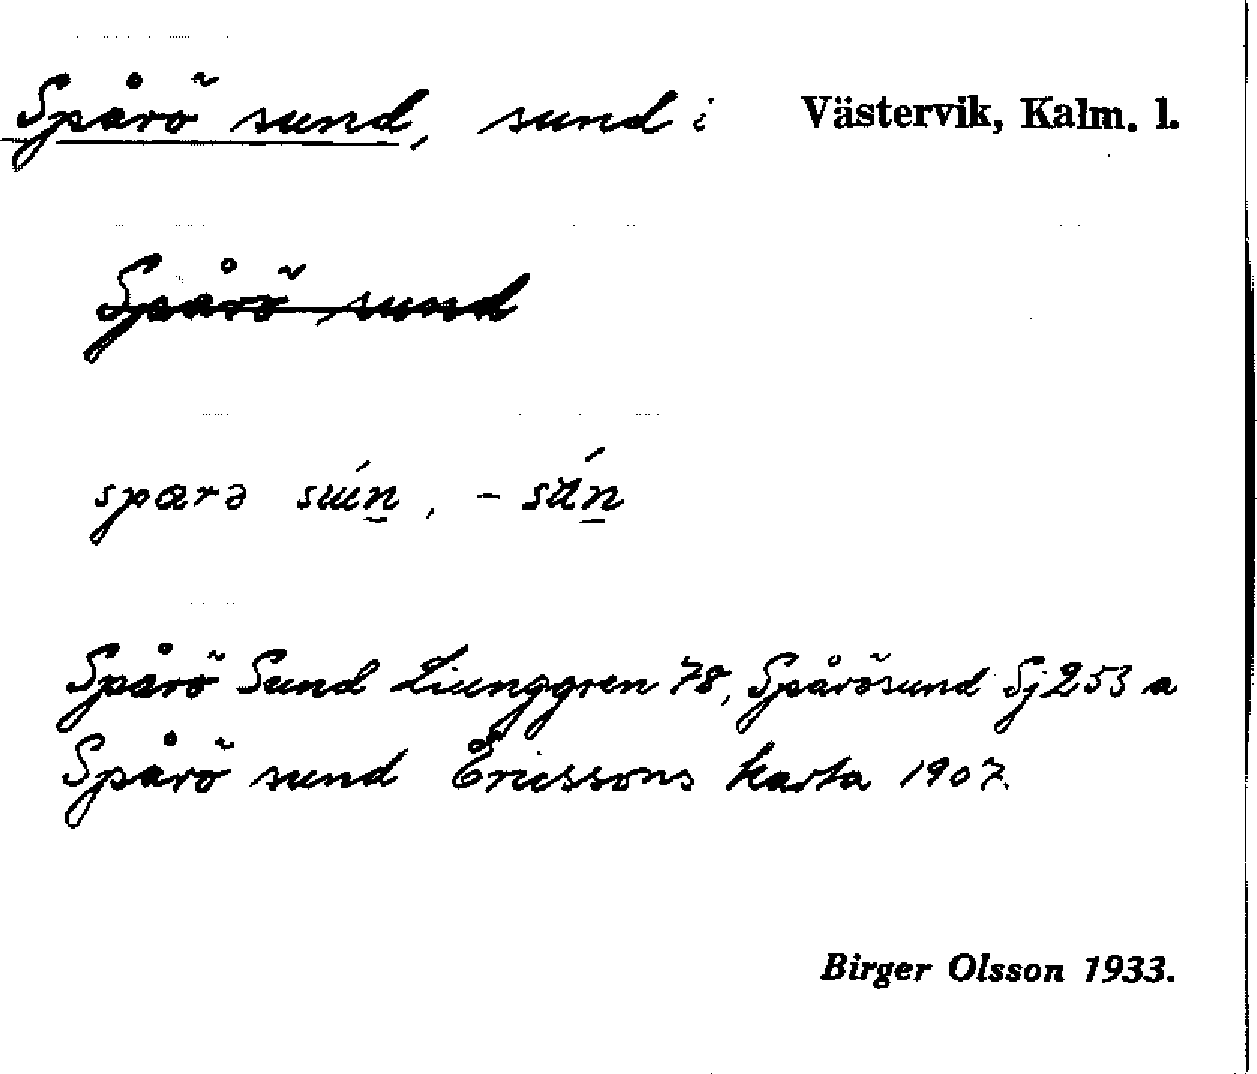 Spårö sund, sund i Västervik, Kalm. l.
Spårö sund
spara sún, - sún
Spårö Sund Liunggren 78, Spårösund Sj 253 a
Spårö sund Ericssons karta 1907
Birger Olsson 1933.